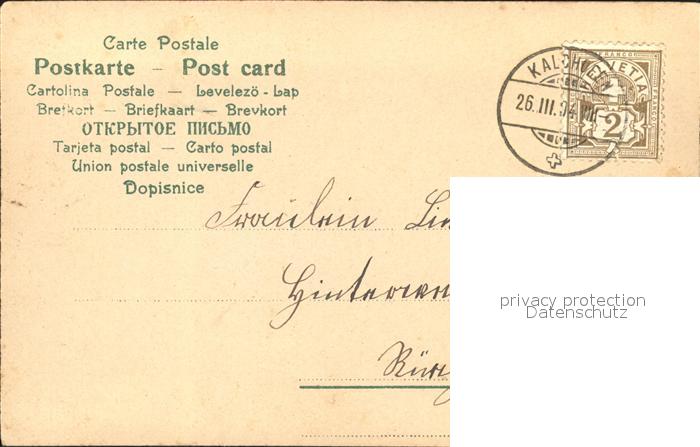 Carte Postale
Postkarte — Post card
Cartolina Postale — Levelezö-Lap
Brefkort — Briefkaart — Brevkort
ОТКРЫТОЕ ПИСЬМО
Tarjeta postal — Carto postal
Union postale universelle
Dopisnice
FRANCO
HELVETIA
2
26.III.04
Fräulein
privacy protection
Datenschutz